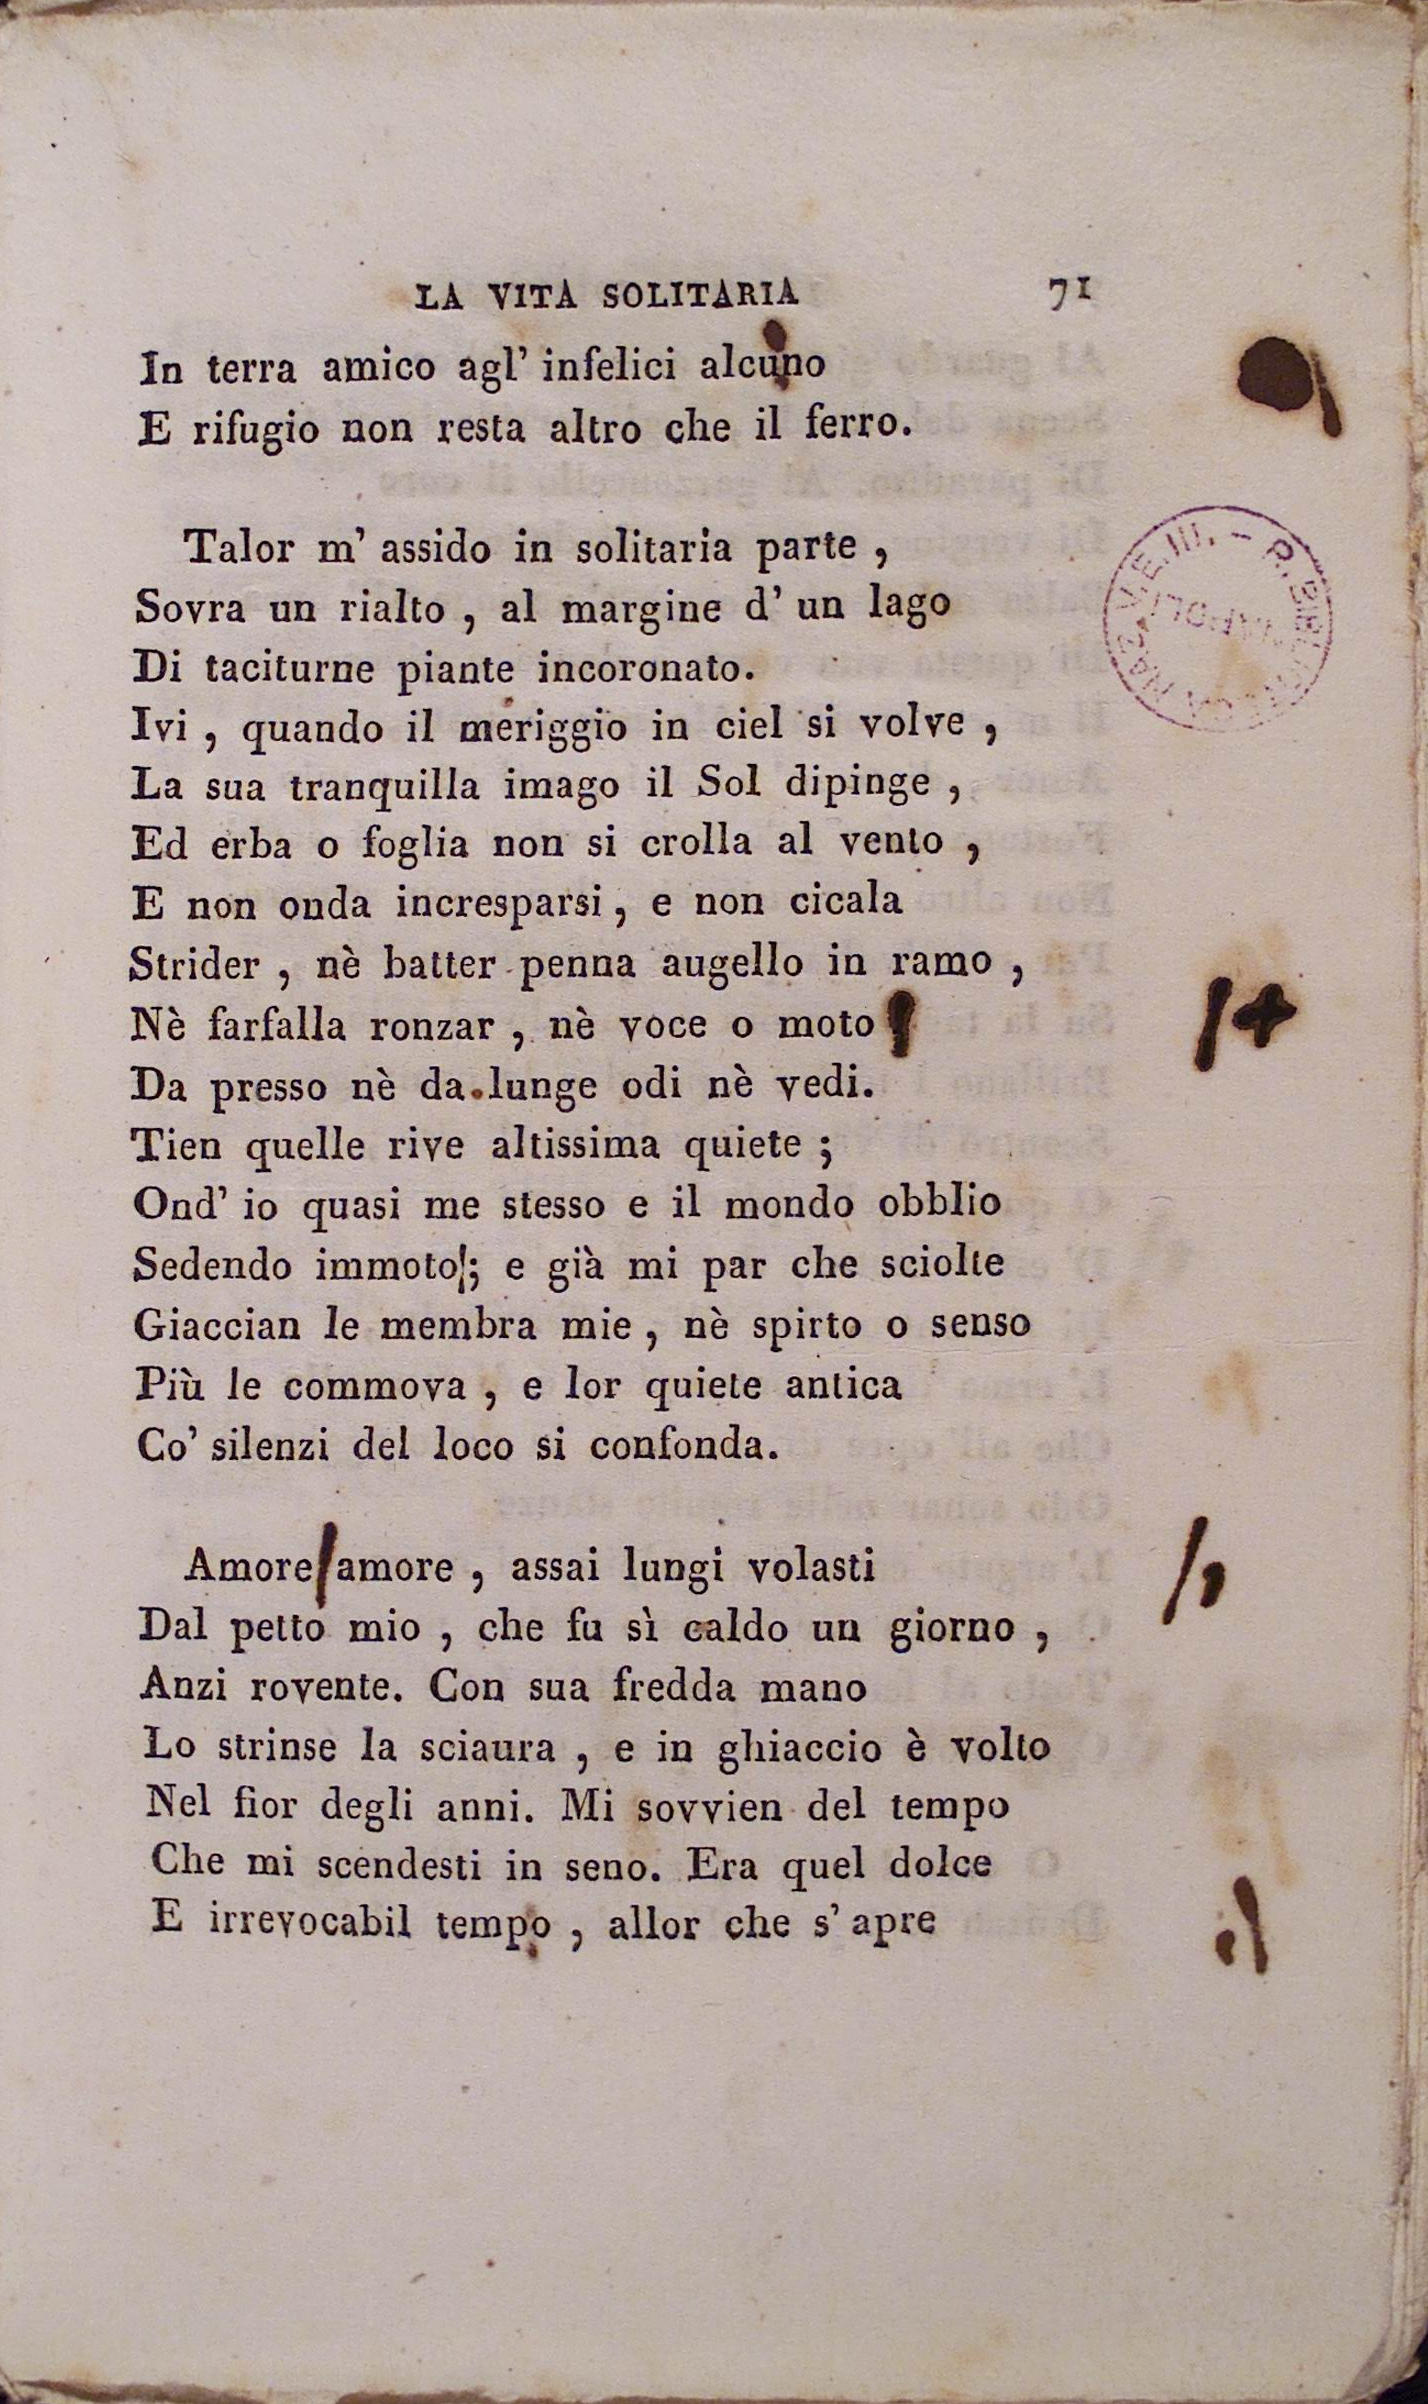 LA VITA SOLITARIA 71
In terra amico agl' infelici alcuno
E rifugio non resta altro che il ferro.
Talor m' assido in solitaria parte ,
Sovra un rialto , al margine d' un lago
Di taciturne piante incoronato.
Ivi , quando il meriggio in ciel si volve ,
La sua tranquilla imago il Sol dipinge ,
Ed erba o foglia non si crolla al vento ,
E non onda incresparsi , e non cicala
Strider , nè batter penna augello in ramo ,
Nè farfalla ronzar , nè voce o moto
Da presso nè da lunge odi nè vedi.
Tien quelle rive altissima quiete ;
Ond' io quasi me stesso e il mondo obblio
Sedendo immoto ; e già mi par che sciolte
Giaccian le membra mie , nè spirto o senso
Più le commova , e lor quiete antica
Co' silenzi del loco si confonda.
Amore amore , assai lungi volasti
Dal petto mio , che fu sì caldo un giorno ,
Anzi rovente. Con sua fredda mano
Lo strinse la sciaura , e in ghiaccio è volto
Nel fior degli anni. Mi sovvien del tempo
Che mi scendesti in seno. Era quel dolce
E irrevocabil tempo , allor che s' apre